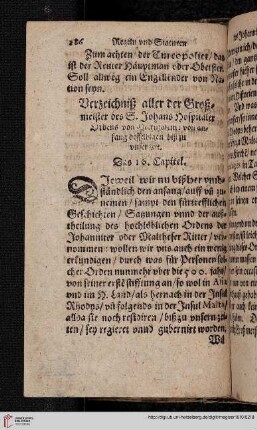 186 Regeln vnd Statuten
Zum achten der Turcopolier / das
ist der Reuter Häuptman oder Oberster.
Soll allweg ein Engelländer von Na-
tion seyn.
Verzeichniß aller der Groß-
meister des S. Johans Hospitaler
Ordens von Jerusalem / von an-
fang desselbigen biß zu
vnser zeit.
Das 16. Capitel.
Dieweil wir nu bißher vmb-
ständlich den anfang / auff vñ zu-
nemen / sampt den fürtrefflichen
Geschichten / Satzungen vnnd der auß-
theilung des hochlöblichen Ordens der
Johanniter oder Maltheser Ritter / ver-
nommen: wollen wir vns auch ein wenig
erkundigen / durch was für Personen sol-
cher Orden nunmehr vber die 500. jahr /
von seiner erst stifftung an / so wol in
vnd im H. Land / als hernach in der Insul
Rhodys / vñ folgends in der Insul Malta /
allda sie noch residiren / biß zu vnsern zei-
ten / sey regieret vnnd gubernirt worden.